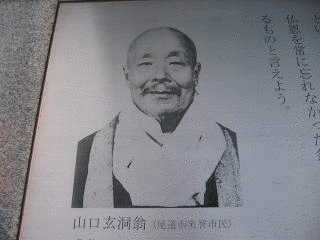 仏恩を常に忘れなかった
るものと言えよう。
山口玄洞翁(尾道市名誉市民)